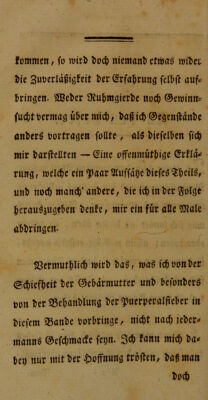 kommen, so wird doch niemand etwas wider
die Zuverläßigkeit der Erfahrung selbst auf-
bringen. Weder Ruhmgierde noch Gewinn-
sucht vermag über mich, daß ich Gegenstände
anders vortragen sollte, als dieselben sich
mir darstellten — Eine offenmüthige Erklä-
rung, welche ein Paar Aufsätze dieses Theils,
und noch manch' andere, die ich in der Folge
herauszugeben denke, mir ein für alle Male
abdringen.
Vermuthlich wird das, was ich von der
Schiefheit der Gebärmutter und besonders
von der Behandlung der Puerperalfieber in
diesem Bande vorbringe, nicht nach jeder-
manns Geschmacke seyn. Ich kann mich da-
bey nur mit der Hoffnung trösten, daß man
doch